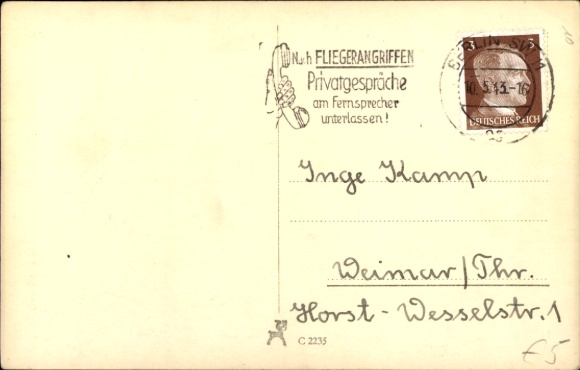 Nach FLIEGERANGRIFFEN
Privatgespräche
am Fernsprecher
unterlassen!
BERLIN SW 11
10.5.43.-16
3 3
DEUTSCHES REICH
Inge Kamp
Weimar/Thr.
Horst-Wesselstr. 1
C 2235
€5
10